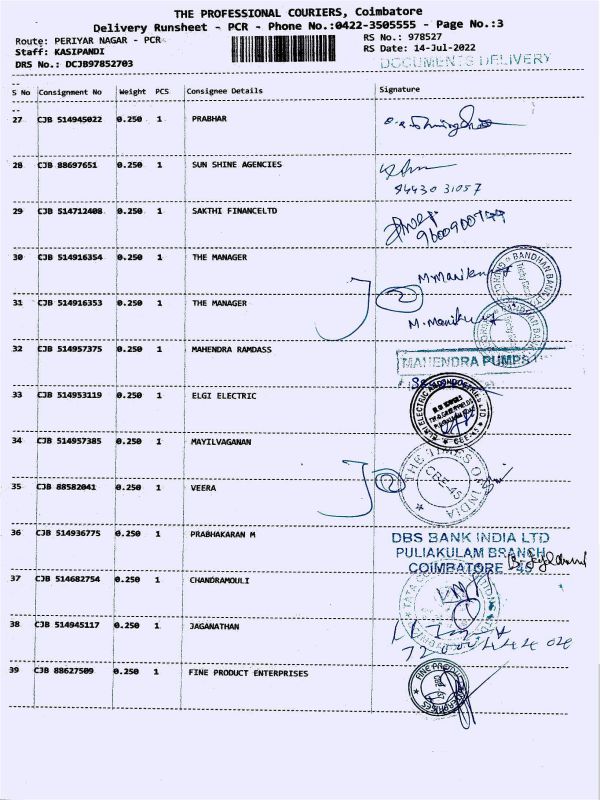 THE PROFESSIONAL COURIERS, Coimbatore
Delivery Runsheet - PCR - Phone No.:0422-3505555 - Page No.:3
Route: PERIYAR NAGAR - PCR
RS No.: 978527
Staff: KASIPANDI
RS Date: 14-Jul-2022
DRS No.: DCJB97852703
DOCUMENTS DELIVERY
S No Consignment No Weight PCS Consignee Details Signature
27 CJB 514945022 0.250 1 PRABHAR
28 CJB 88697651 0.250 1 SUN SHINE AGENCIES
94430 31057
29 CJB 514712408 0.250 1 SAKTHI FINANCELTD
30 CJB 514916354 0.250 1 THE MANAGER
BANDHAN BANK LTD
31 CJB 514916353 0.250 1 THE MANAGER
BANDHAN BANK
32 CJB 514957375 0.250 1 MAHENDRA RAMDASS
MAHENDRA PUMPS
33 CJB 514953119 0.250 1 ELGI ELECTRIC
34 CJB 514957385 0.250 1 MAYILVAGANAN
THE TIMES OF INDIA
CBE-45
35 CJB 88582041 0.250 1 VEERA
36 CJB 514936775 0.250 1 PRABHAKARAN M
DBS BANK INDIA LTD
PULIAKULAM BRANCH
COIMBATORE - 45
37 CJB 514682754 0.250 1 CHANDRAMOULI
38 CJB 514945117 0.250 1 JAGANATHAN
39 CJB 88627509 0.250 1 FINE PRODUCT ENTERPRISES